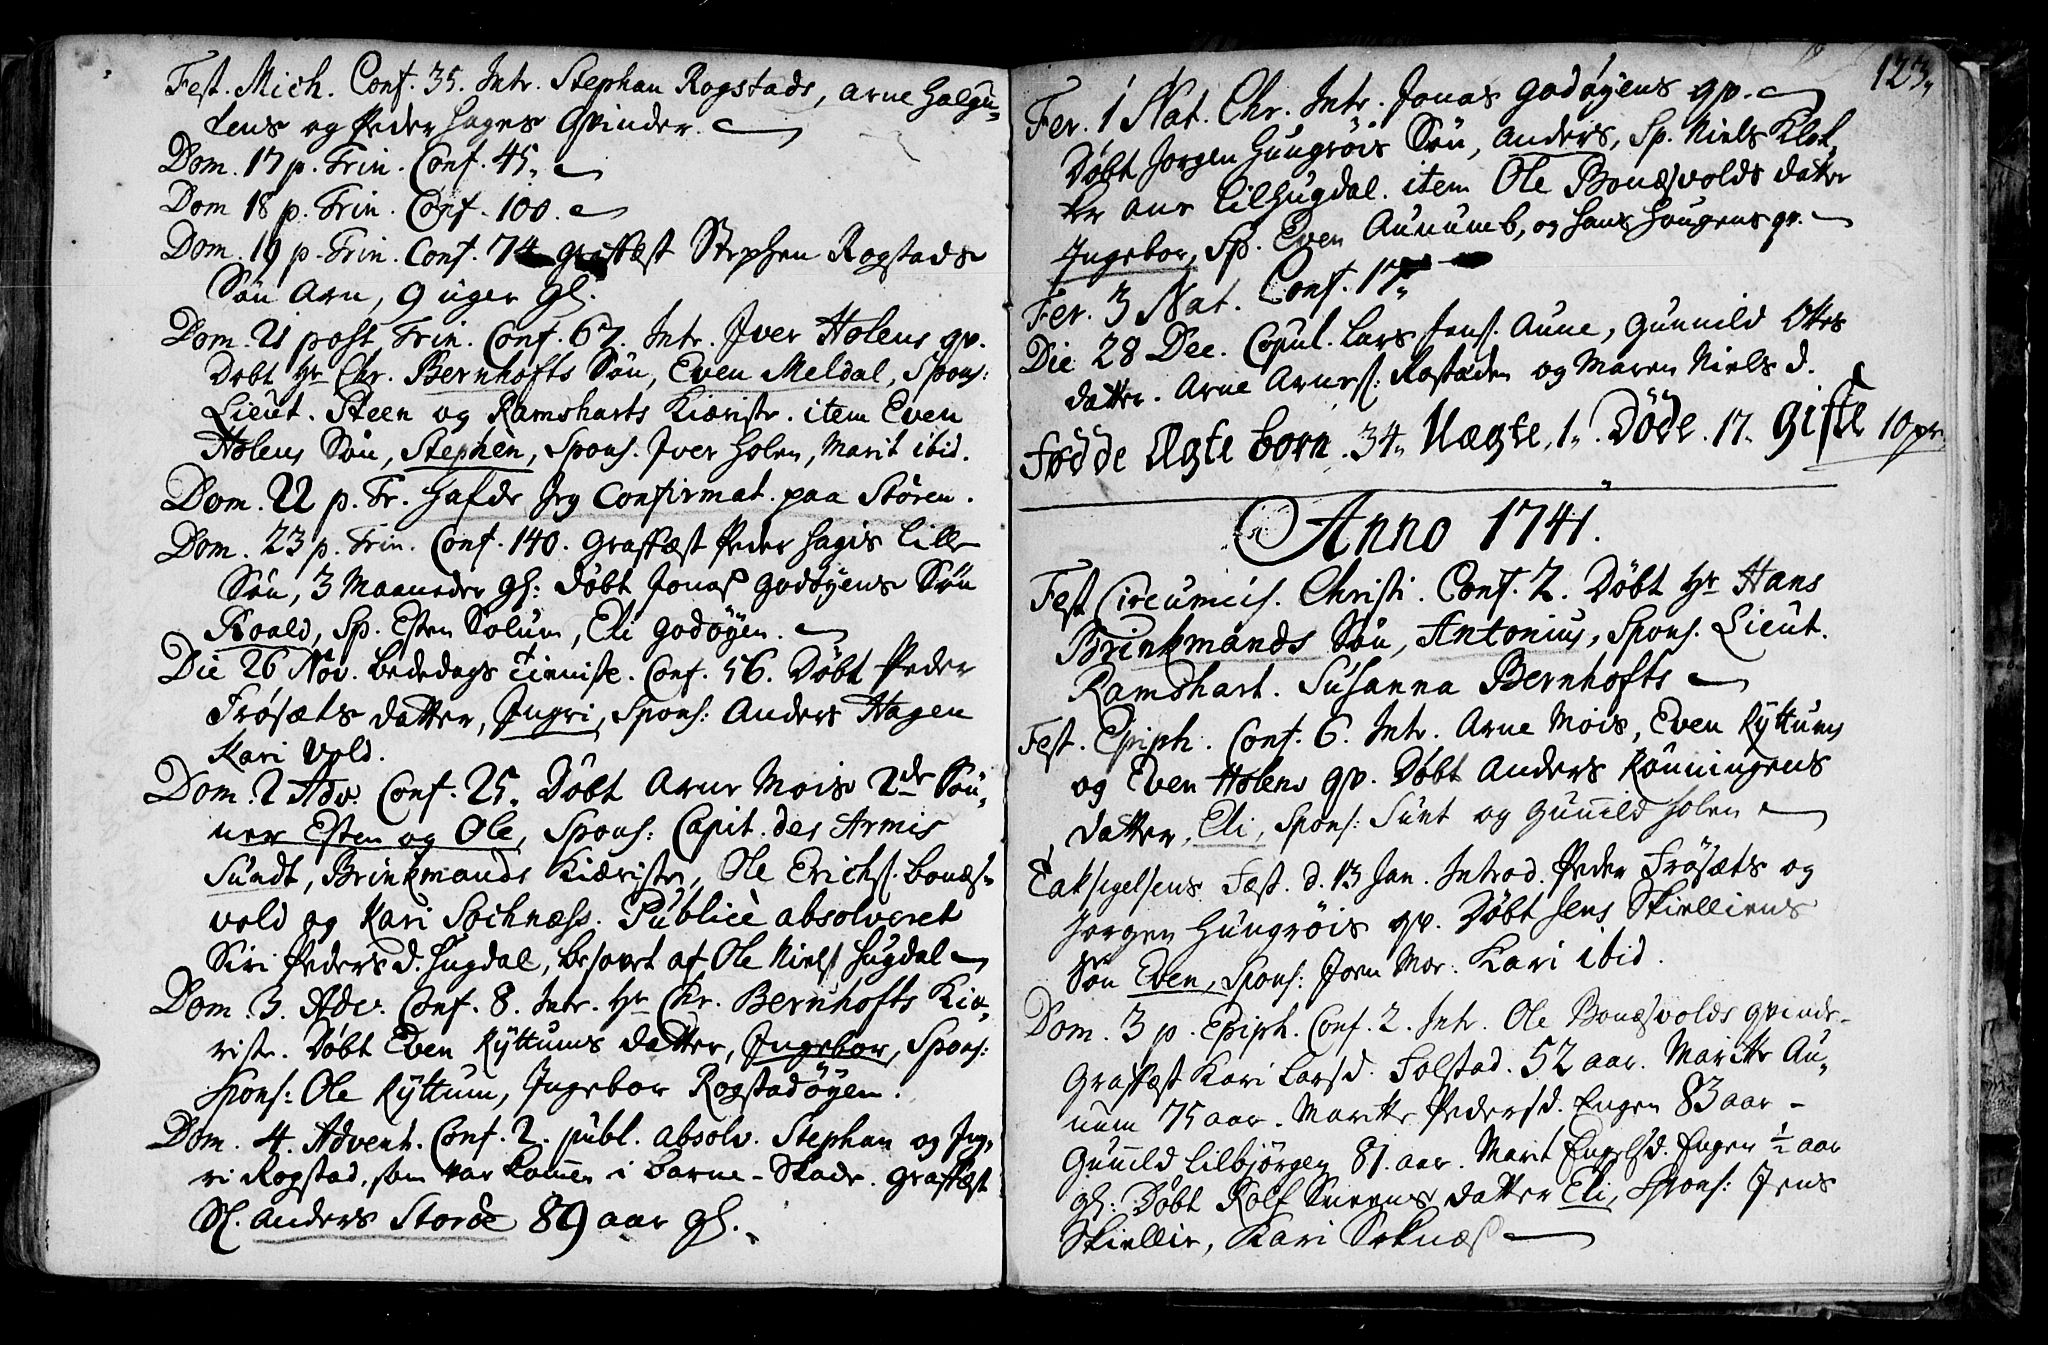 Fest. Mich. Conf. 35. Intr. Stephan Rogstads, Arne Halgu-
tens og Peder Hages Qvinder.
Dom. 17 p. Trin. Conf. 45.
Dom 18 p. Trin. Conf. 100.
Dom. 19 p. Trin. Conf. 74 Graffæst Stephen Rogstads
Søn Arn, 9 uger Gl.
Dom. 21 post Trin. Conf. 67. Intr. Iver Holens qv.
Døbt Hr Chr. Bernhofts Søn, Even Meldal, Spons:
Lieut. Steen og Ramsharts Kiæriste. item Even
Holens Søn, Stephen, Spons. Iver Holen, Marit ibid.
Dom. 22 p. Tr. Hafde Jeg Confirmat. paa Støren.
Dom. 23 p. Trin. Conf. 140. Graffæst Peder Hagis Lille
Søn, 3 Maaneder gl: Døbt Jonas Godøyens Søn
Roald, Sp. Esten Solum, Eli Godøyen.
Die 26 Nov. Bededags tienniste. Conf. 56. Døbt Peder
Frøsæts datter, Ingri, Spons: Anders Hagen
Kari Vold.
Dom. 2 Adv. Conf. 25. Døbt Arne Mois 2de Søn-
ner Esten og Ole, Spons: Capit. des Armis
Sundt, Brinkmands Kiæriste, Ole Erichs. Bonæs-
vold og Kari Sochnæss. Publicè absolveret
Siri Peders d. Hugdal, besovet af Ole Niels Hugdal
Dom. 3. Adv. Conf. 8. Intr. Hr Chr. Bernhofts Kiæ-
riste. Døbt Even Kyttums datter, Ingebor, Spons:
Spons: Ole Kyttum, Ingebor Rogstadøyen.
Dom. 4. Advent. Conf. 2. publ. absolv. Stephan og Ing-
ri Rogstad, som var kommen i Barne-Skade. Graffæst
Sl. Anders Storøe 89 aar gl.
123.
Fer. 1 Nat. Chr. Intr. Jonas Godøyens qv.
Døbt Jørgen Hungrøis Søn, Anders, Sp. Niels Klok-
ker Ane Lilhugdal. item Ole Bonæsvolds datter
Ingebor, Sp. Even Aunumb, og Hans Hougens qv.
Fer. 3 Nat. Conf. 17.
Die 28 Dec. Copul. Lars Jens. Aune, Gunnild Oles
datter. Arne Arnes: Rostaden og Maren Niels d.
Fødde Ægte børn. 34. Uægte, 1. Døde. 17. Gifte 10 pr.
Anno 1741.
Fest Circumcis. Christi. Conf. 2. Døbt Hr Hans
Brinkmands Søn, Antonius, Spons. Lieut.
Ramshart. Susanna Bernhofts
Fest. Epiph. Conf. 6. Intr. Arne Mois, Even Kyttums
og Even Holens qv. Døbt Anders Rønningens
datter, Eli, Spons: Sunt og Gunild Holen
Taksigelsens Fæst. d. 13 Jan. Introd. Peder Frøsæts og
Jørgen Hungrøis qv. Døbt Jens Skielliens
Søn Even, Spons: Joen Mor: Kari ibid.
Dom. 3 p. Epiph. Conf. 2. Intr. Ole Bonæsvolds qvinde.
Graffæst Kari Lars d. Folstad. 52 aar. Maritte Au-
num 75 aar. Maritte Peders d. Engen 83 aar.
Gunild Lilbjørgen 81. aar. Marit Engels d. Engen ½ aar
gl: Døbt Rolf Sneens datter Eli, Spons: Jens
Skiellie, Kari Soknæs